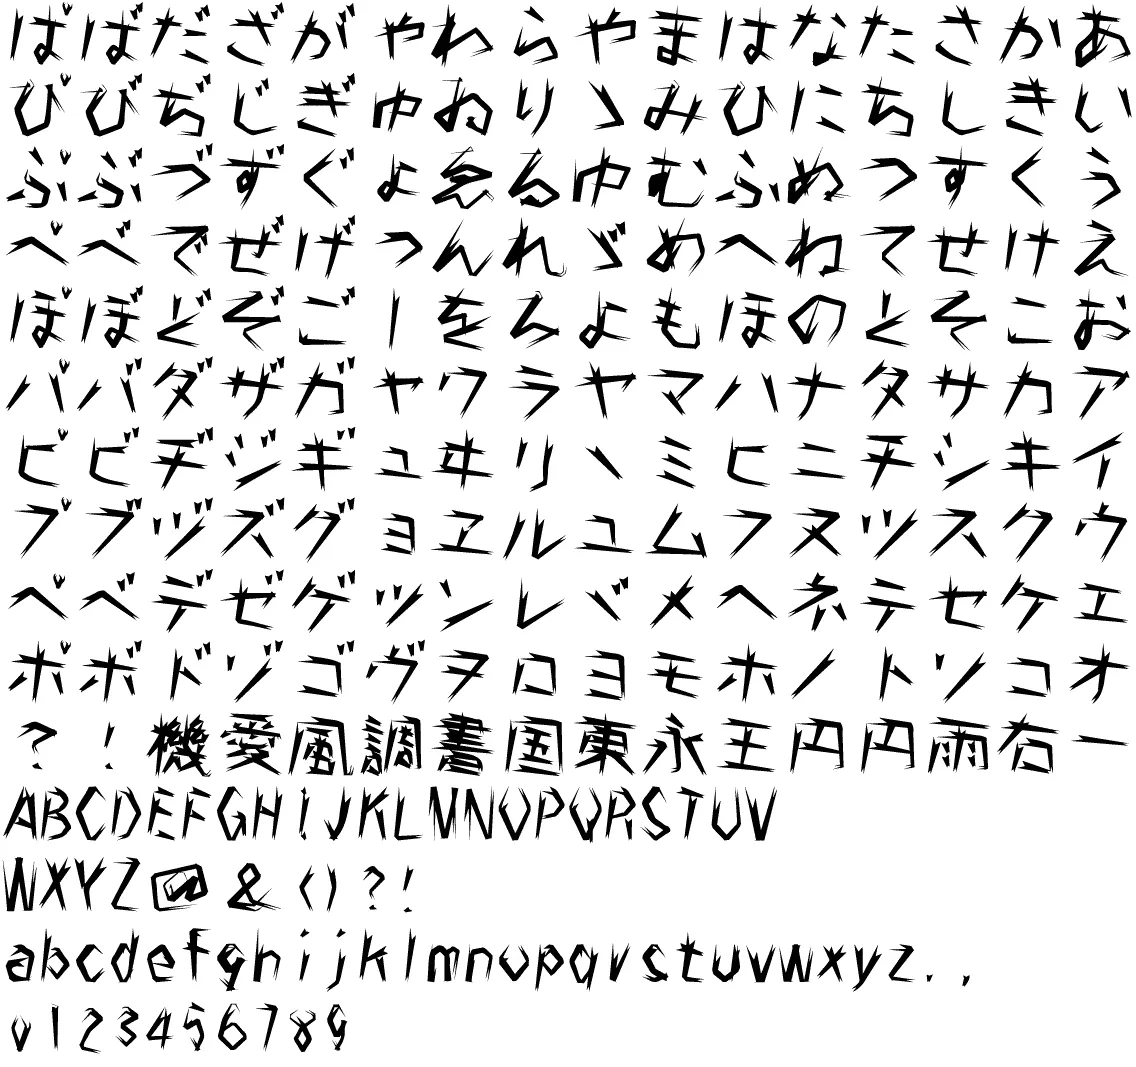 ぱばだざがゃわらやまはなたさかあ
ぴびぢじぎゅゐりゝみひにちしきい
ぷぶづずぐょゑるゆむふぬつすくう
ぺべでぜげっんれゞめへねてせけえ
ぽぼどぞごーをろよもほのとそこお
パバダザガャワラヤマハナタサカア
ピビヂジギュヰリヽミヒニチシキイ
プブヅズグョヱルユムフヌツスクウ
ペベデゼゲッンレヾメヘネテセケエ
ポボドゾゴヴヲロヨモホノトソコオ
？！機愛風調書国東永王円円雨右一
ABCDEFGHIJKLMNOPQRSTUV
WXYZ@&()?!
abcdefghijklmnopqrstuvwxyz.,
0123456789